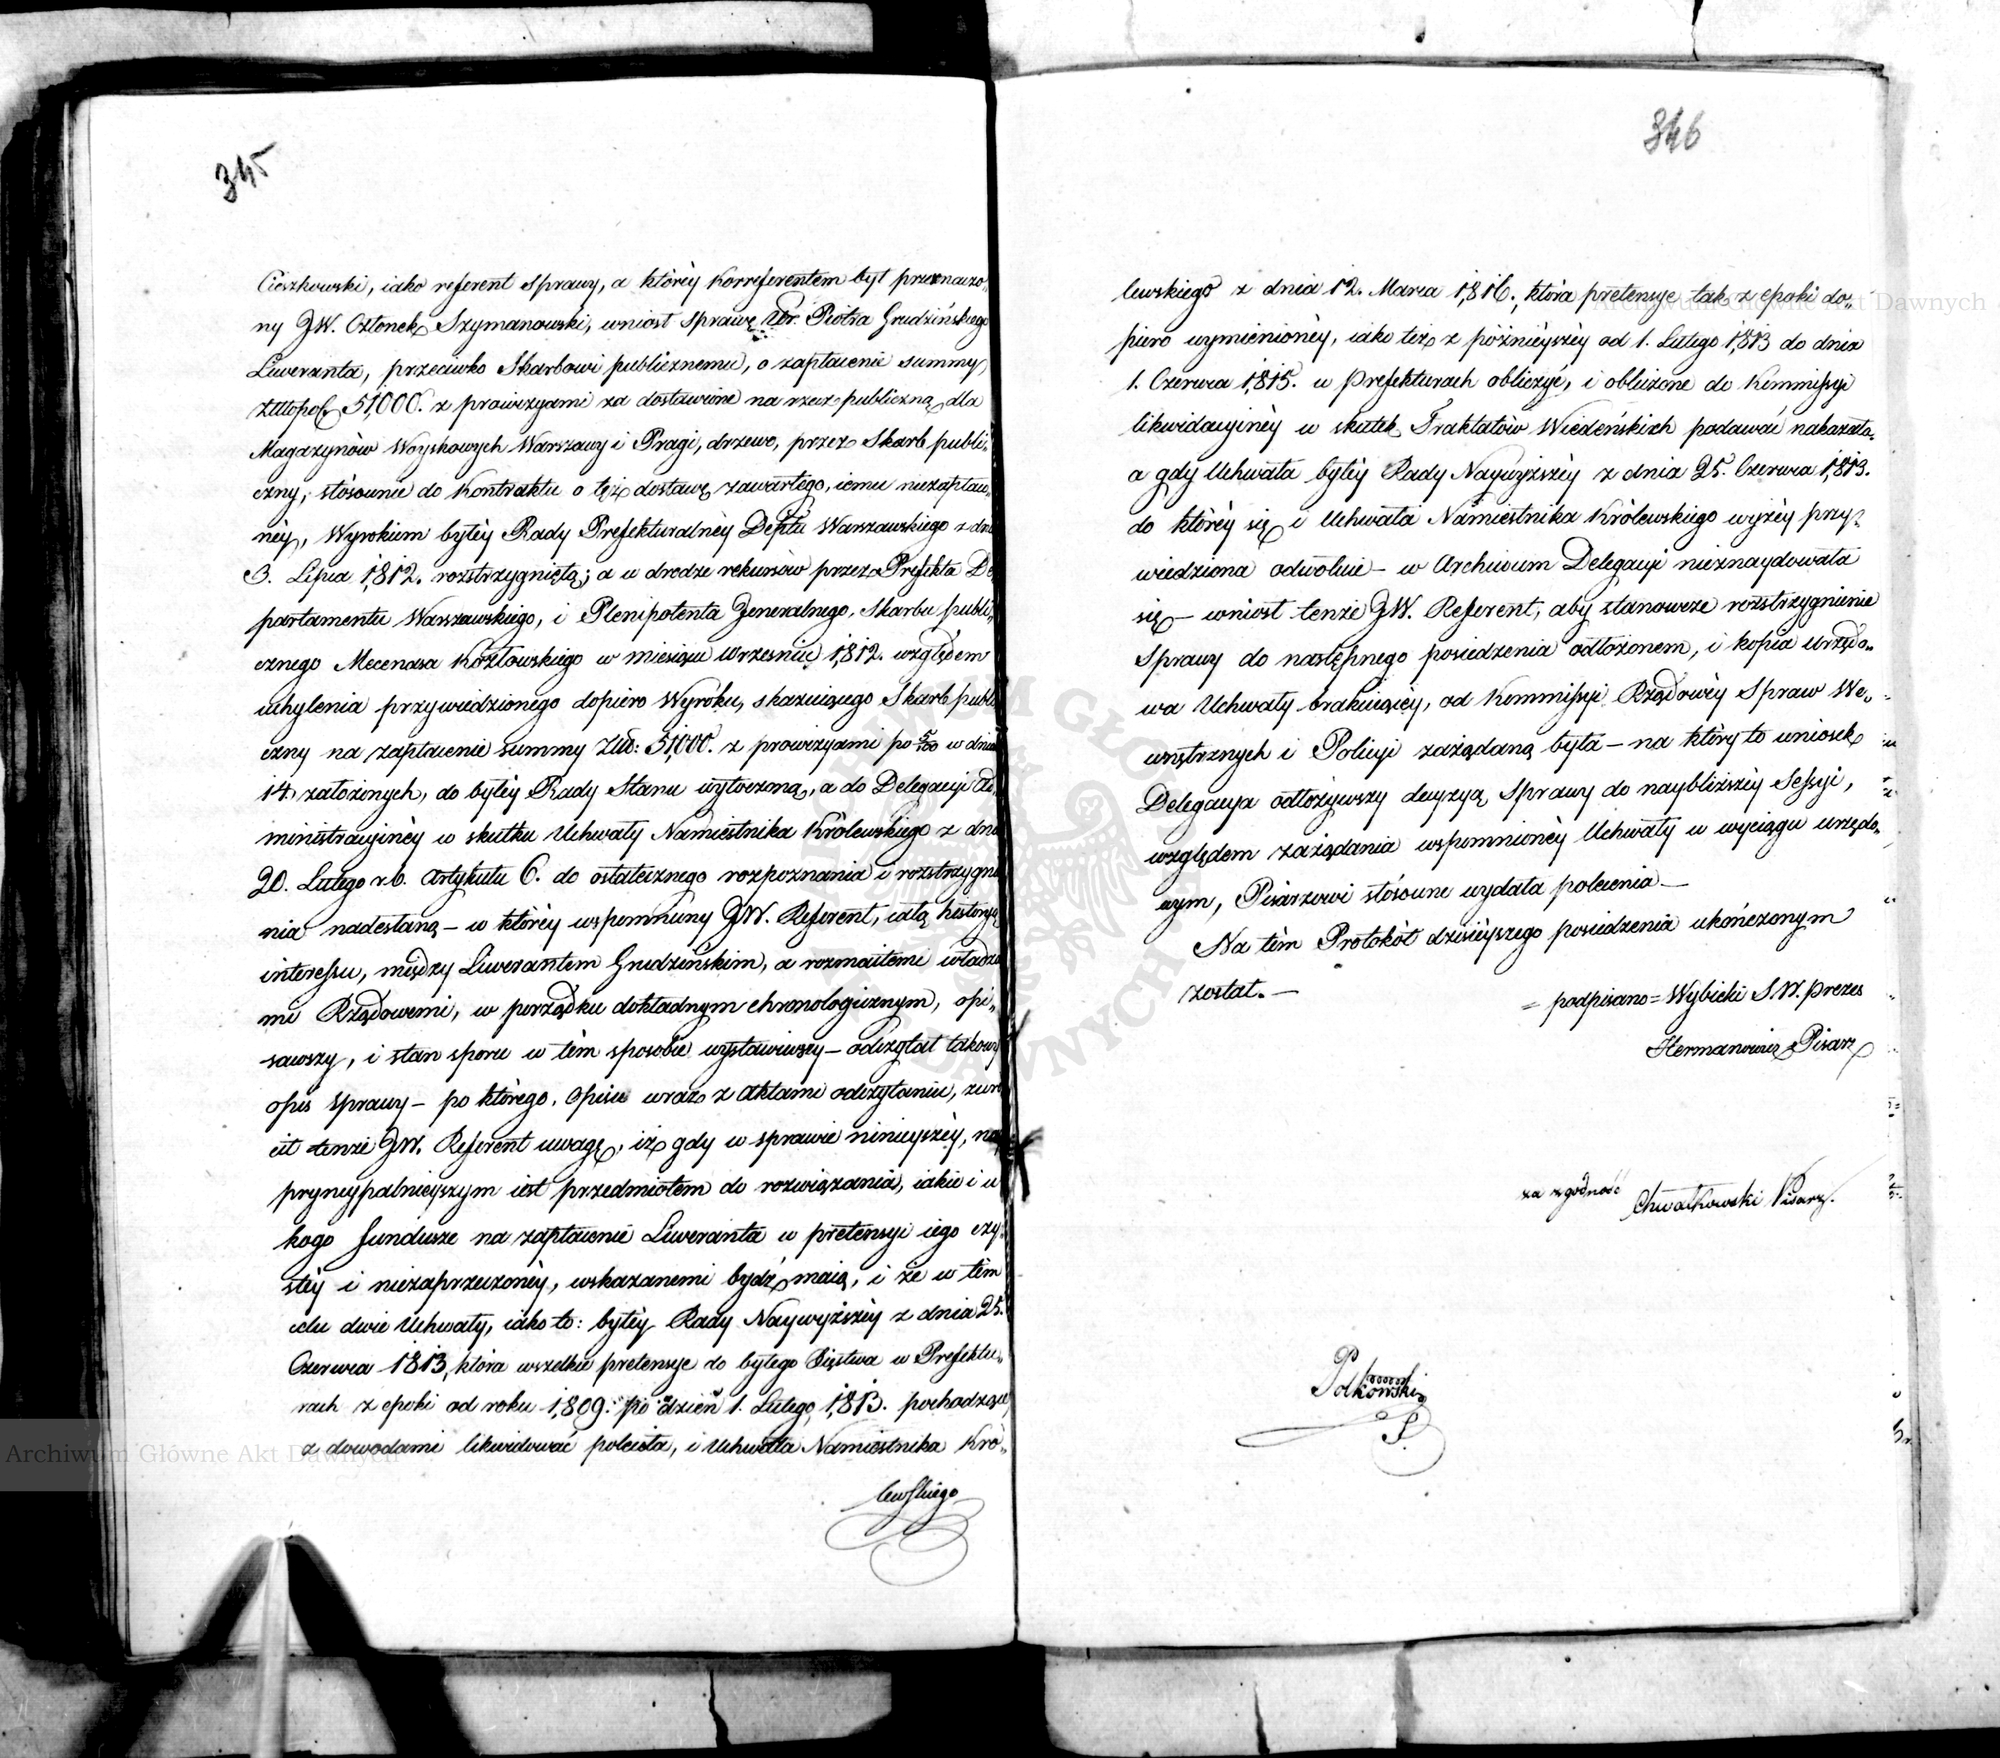 345
Cieszkowski, iako referent sprawy, a którèy Korreferentem był przeznaczo„
ny JW. Członek Szymanowski, wniosł sprawę Ur. Piotra Grudzińskiego
Liweranta, przeciwko Skarbowi publicznemu, o zapłacenie summy
Złłopol: 51,000. z prowizyami za dostawione na rzecz publiczną dla
Magazynów Woyskowych Warszawy i Pragi, drzewo, przez Skarb publi„
czny, stósownie do Kontraktu o tęż dostawę zawartego, iemu niezapłaco„
nèy, Wyrokiem byłèy Rady Prefekturalnèy Deptu Warszawskiego z dnia
3. Lipca 1,812. rozstrzygniętą; a w drodze rekursów przez Prefekta De
partamentu Warszawskiego, i Plenipotenta Jeneralnego, Skarbu publi„
cznego Mecenasa Kozłowskiego w miesiącu Wrześniu 1,812. względem
uchylenia przywiedzionego dopiero Wyroku, skazuiącego Skarb publi
czny na zapłacenie summy Złłp: 51,000. z prowizyami po 5/100 w dniu
14. założonych, do byłèy Rady Stanu wytoczoną, a do Delegacyi Ad„
ministracyinèy w skutku Uchwały Namiestnika Królewskiego z dnia
20. Lutego r.b. Artykułu 6. do ostatecznego rozpoznania i rozstrzygnie
nia nadesłaną – w którèy wspomniony JW. Referent, całą historyą
interessu, między Liwerantem Grudzińskim, a rozmaitemi władza
mi Rządowemi, w porządku dokładnym chronologicznym, opi„
sawszy, i stan sporu w tèm sposobie wystawiwszy – odczytał takowy
opis sprawy – po którego, opisu wraz z Aktami odczytaniu, zwró
cił tenże JW. Referent uwagę, iż gdy w sprawie ninieyszèy, nay
pryncypalnieyszym iest przedmiotem do rozwiązania, iakie i u
kogo fundusze na zapłacenie Liweranta w pretensyi iego czy„
stèy i niezaprzeczonèy, wskazanemi bydź maią, i że w tèm
celu dwie Uchwały, iako to: byłèy Rady Naywyższèy z dnia 25.
Czerwca 1813, która wszelkie pretensye do byłego Xięstwa w Prefektu„
rach z epoki od roku 1,809. po dzień 1. Lutego 1,813. pochodzące,
z dowodami likwidować poleciła, i Uchwała Namiestnika Kró„
lewskiego
346
lewskiego z dnia 12. Marca 1,816., która pretensye tak z epoki do„
piero wymienionèy, iako też z pózniéyszèy od 1. Lutego 1,813 do dnia
1. Czerwca 1,815. w Prefekturach obliczyć, i obliczone do Kommissyi
likwidacyinèy w skutek Traktatów Wiedeńskich podawać nakazała„
a gdy Uchwała byłèy Rady Naywyższèy z dnia 25. Czerwca 1,813.
do którèy się i Uchwała Namiestnika Królewskiego wyżèy przy„
wiedziona odwołuie – w Archiwum Delegacyi nieznaydowała
się – wniosł tenże JW. Referent, aby stanowcze rozstrzygnienie
Sprawy do następnego posiedzenia odłożonem, i kopia urzędo„
wa Uchwały brakuiącèy, od Kommissyi Rządowèy Spraw We„
wnętrznych i Policyi zażądaną była – na który to wniosek
Delegacya odłożywszy decyzyą Sprawy do naybliższèy Sessyi,
względem zażądania wspomnionèy Uchwały w wyciągu urzędo„
wym, Pisarzowi stósowne wydała polecenia –
Na tèm Protokół dzisieyszego posiedzenia ukończonym
został. –
= podpisano = Wybicki S.W. Prezes
Hermanowicz Pisarz
za zgodność Chwalkowski Pisarz.
Polkowski